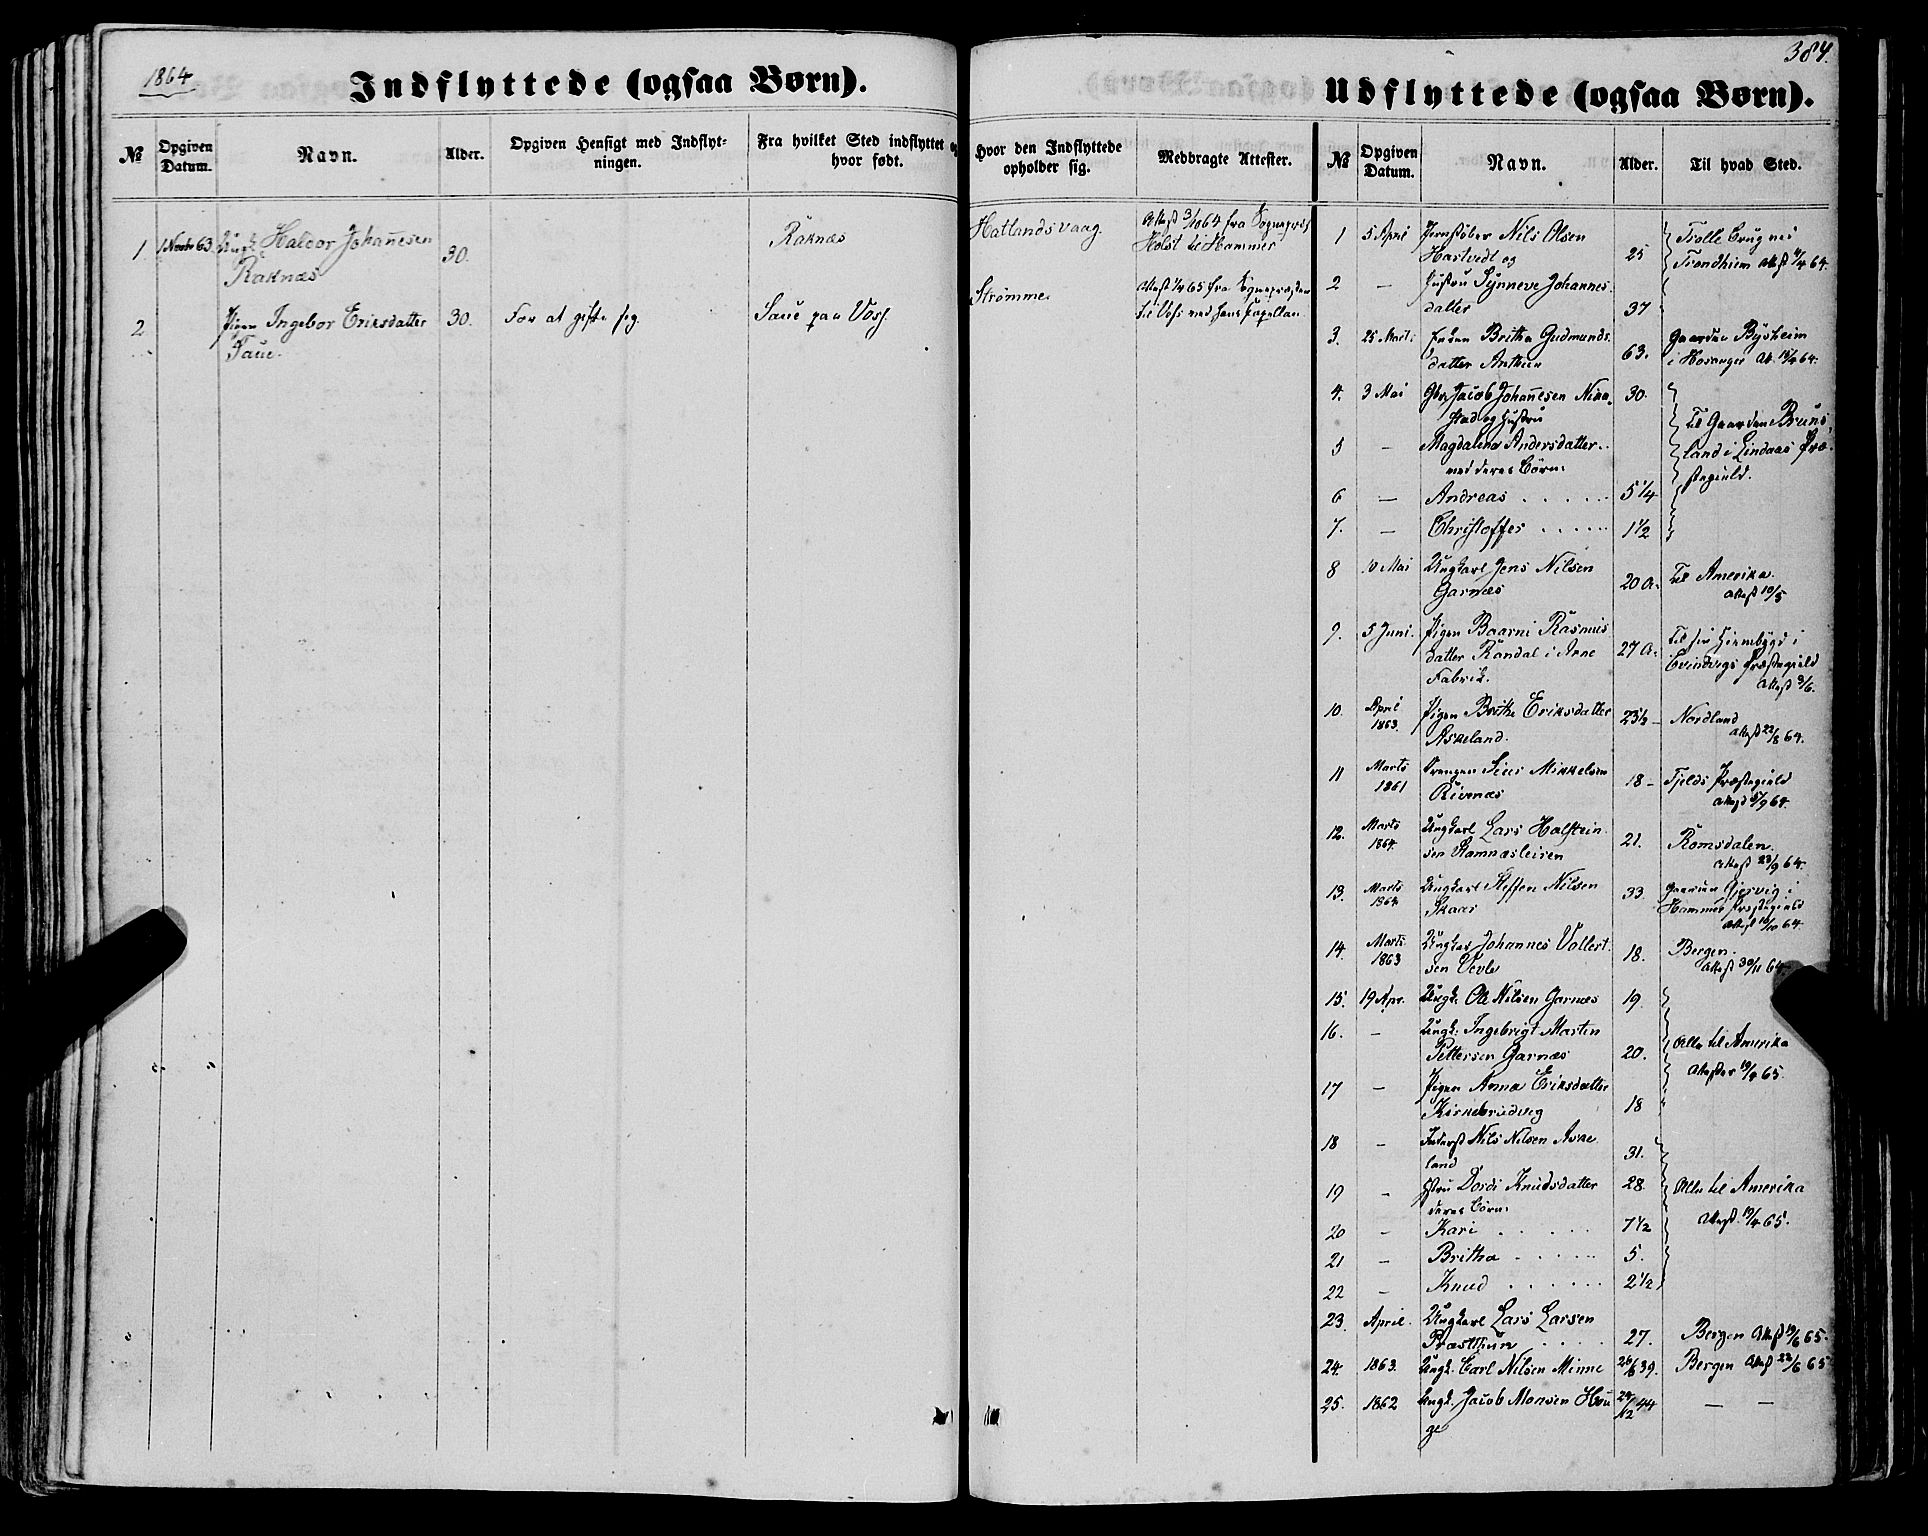 1864
Indflyttede (ogsaa Børn).
№
Opgiven Datum.
Navn.
Alder.
Opgiven Hensigt med Indflyt-
ningen.
Fra hvilket Sted indflyttet og
hvor født.
Hvor den Indflyttede
opholder sig.
Medbragte Attester.
1 1 Novbr 63. Ungk. Haldor Johanesen 30. Raknæs Hatlandsvaag Attest 3/10 64 fra
Raknæs
Holst til Hammer
2 Pigen Ingebor Eriksdatter 30. For at gifte sig. Saue paa Voss Strømme Attest 1/4 65 fra Sognepræsten
Saue.
til Voss ved hans Capellan
384.
Udflyttede (ogsaa Børn).
№
Opgiven Datum.
Navn.
Alder.
Til hvad Sted.
1 5 April Jernstøber Nils Olsen
Hartvedt og 25
Trolle Brug ved
Trondhiem Att. 11/4 64.
2 — Hustru Synneve Johannes
datter 37
3. 25 Mart: Enken Britha Gudmunds
datter Arthun 63.
Gaarden Bysheim
i Hosanger Att. 13/4 64.
4. 3 Mai Gbr. Jacob Johanesen 30.
stad og Hustru
5 — Magdalena Andersdatter
med deres Børn:
Til Gaarden Bruns
land i Lindaas Præ
stegield.
6 — Andreas . . . . . 5 1/4
7. — Christoffer . . . . . 1 1/2
8 10 Mai Ungkarl Jens Nilsen
Garnæs 20 A.
Til Amerika.
Attest 10/5
9. 5 Juni. Pigen Baarni Rasmus
datter Røndal i Arne
Fabrik. 27 A.
Til sin Hiembygd i
Evindvigs Præstegield
Attest 3/6.
10. April
1863. Pigen Brithe Eriksdatter
Askeland. 23 1/2 —
Nordland
Attest 22/8 64.
11 Marts
1861 Drengen Siur Mikkelsen
Rivenæs 18 —
Fjelds Præstegield
Attest 5/9 64.
12. Marts
1864. Ungkarl Lars Halstein
sen Stamnæsleiren 21.
Romsdalen.
Attest 23/9 64.
13. Marts
1864 Ungkarl Steffen Nilsen
Skaar 33.
Gaarden Gjervig i
Hammer Præstegield
Attest 10/10 64.
14. Marts
1863 Ungkar Johannes Vollert
sen Vevle 18.
Bergen.
Attest 30/11 64.
15. 19 Apr. Ungk. Ole Nilsen Garnæs 19.
16. — Ungk. Ingebrigt Martin
Pettersen Garnæs 20.
Alle til Amerika
Attester 19/4 65.
17 — Pigen Anna Eriksdatter
Kirkebrudvig 18
18 — Inderst Nils Nilsen Aske
land 31.
19 — Hstru Dordi Knudsdatter 28.
deres Børn:
Alle til Amerika
Attest. 19/4 65.
20 — Kari . . . . . 7 1/2
21 — Britha . . . . . 5.
22 — Knud . . . . . 2 1/2
23. April. Ungkarl Lars Larsen
Præstthun . . . . 27.
Bergen Att. 19/6 65.
24. 1863. Ungk. Carl Nilsen Minne 26/6 39.
Bergen Att. 22/6 65
25. 1862 Ungk. Jacob Monsen Hau
ge 24/12 44
— —